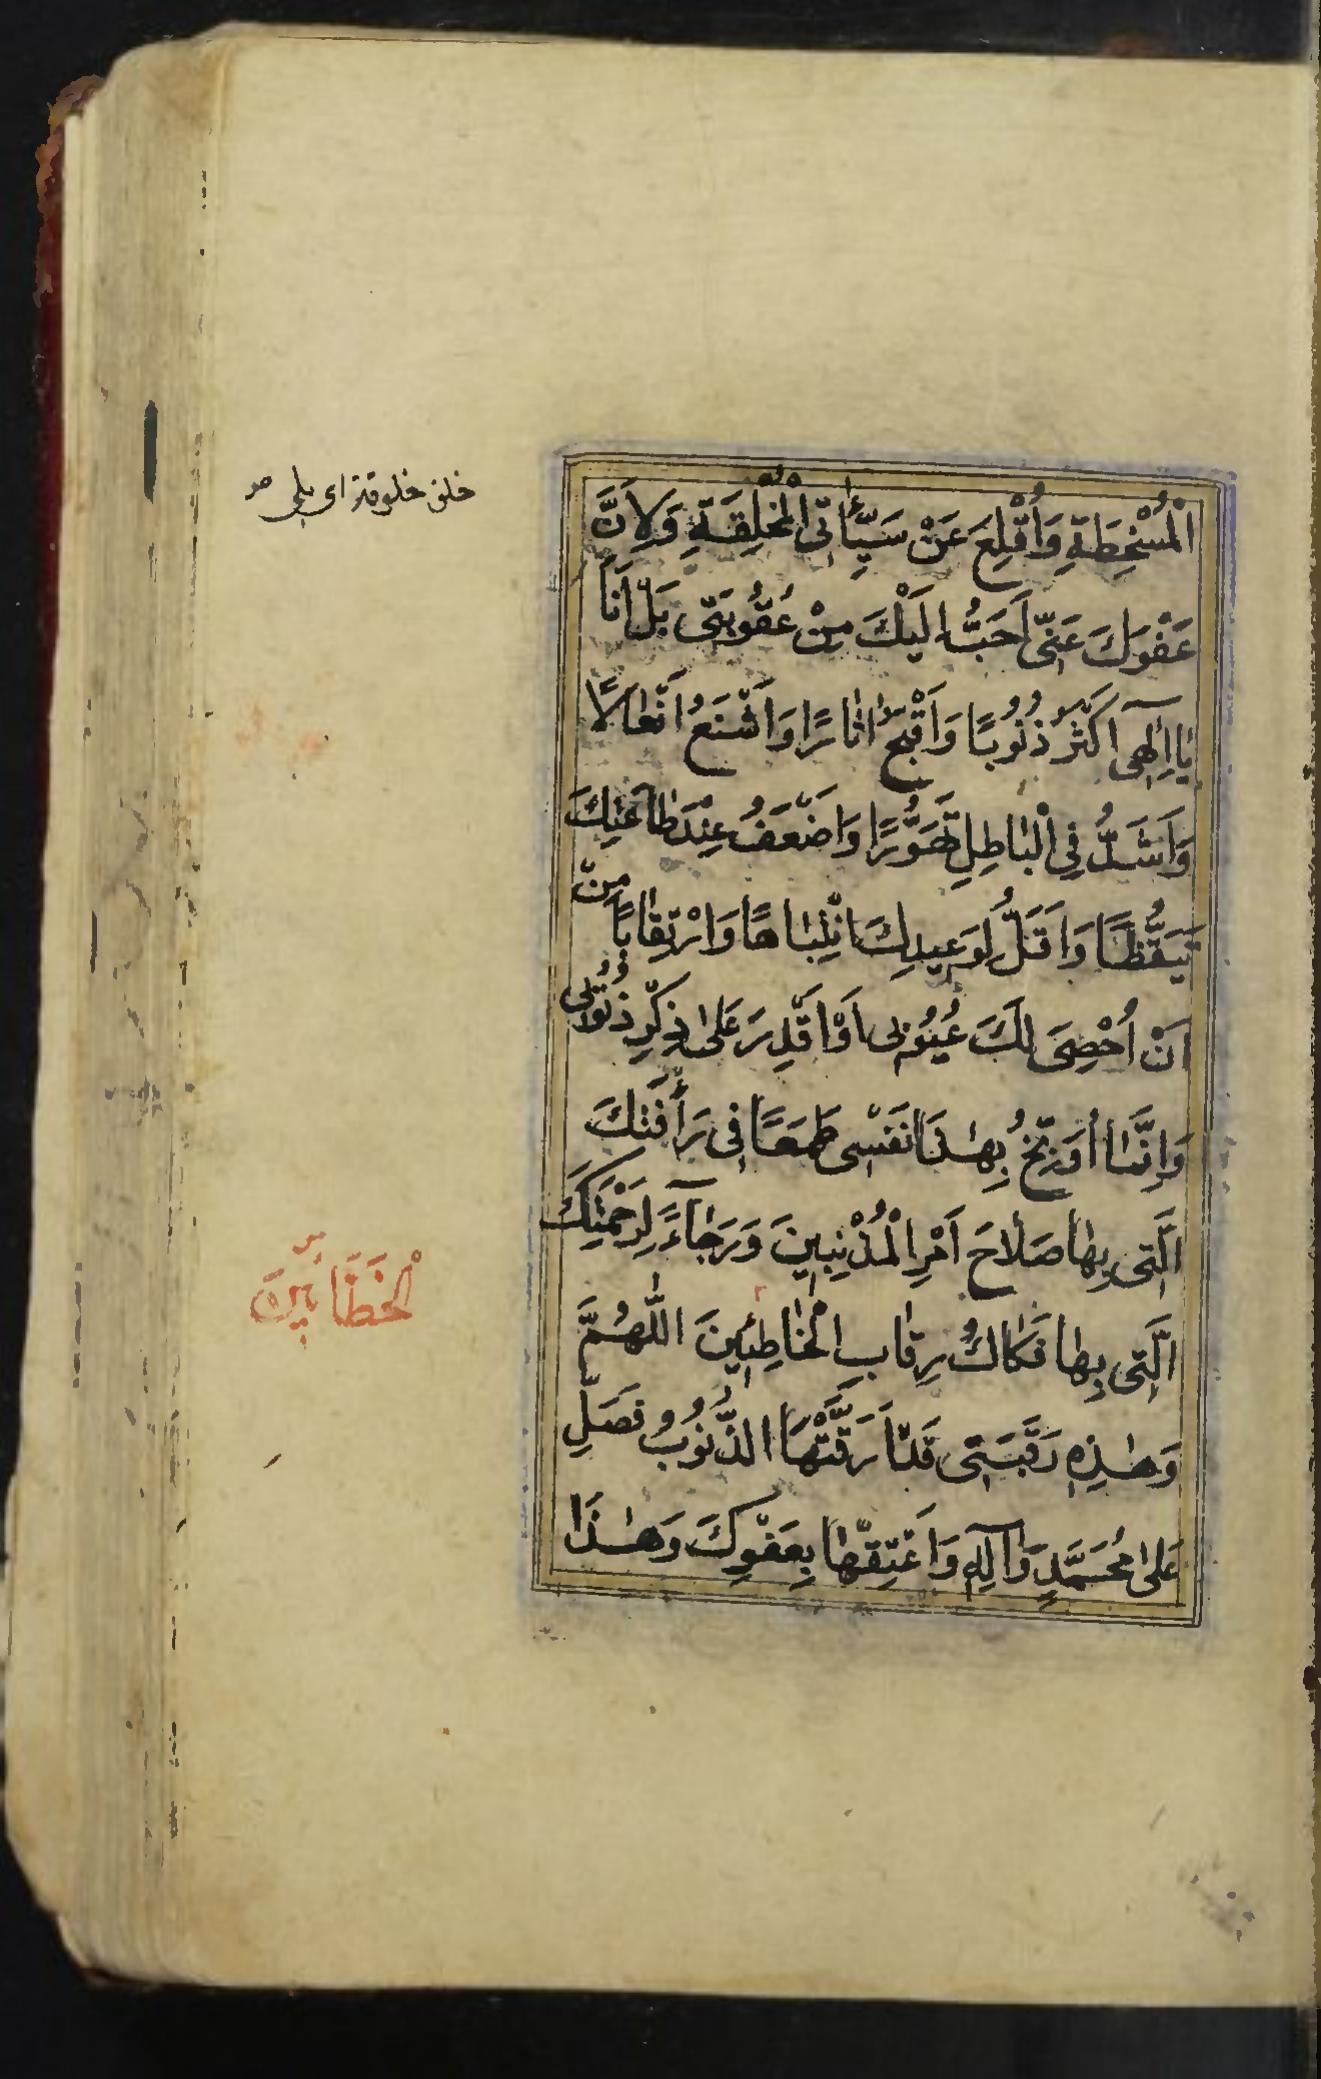 الْمُسْخِطَةِ وَأُقْلِعَ عَنْ سَيِّئَاتِي الْمُخْلِقَةِ وَلِأَنَّ
عَفْوَكَ عَنِّي أَحَبُّ إِلَيْكَ مِنْ عُقُوبَتِي بَلْ أَنَا
يَا إِلٰهِي أَكْثَرُ ذُنُوبًا وَأَقْبَحُ آثَارًا وَأَشْنَعُ أَفْعَالًا
وَأَشَدُّ فِي الْبَاطِلِ تَهَوُّرًا وَأَضْعَفُ عِنْدَ طَاعَتِكَ
تَيَقُّظًا وَأَقَلُّ لِوَعِيدِكَ انْتِبَاهًا وَارْتِقَابًا مِنْ
أَنْ أُحْصِيَ لَكَ عُيُوبِي أَوْ أَقْدِرَ عَلَى ذِكْرِ ذُنُوبِي
وَإِنَّمَا أُوَبِّخُ بِهٰذَا نَفْسِي طَمَعًا فِي رَأْفَتِكَ
الَّتِي بِهَا صَلَاحُ أَمْرِ الْمُذْنِبِينَ وَرَجَاءً لِرَحْمَتِكَ
الَّتِي بِهَا فَكَاكُ رِقَابِ الْخَاطِئِينَ اللّٰهُمَّ
وَهٰذِهِ رَقَبَتِي قَدْ أَرَقَّتْهَا الذُّنُوبُ فَصَلِّ
عَلَى مُحَمَّدٍ وَآلِهِ وَأَعْتِقْهَا بِعَفْوِكَ وَهٰذَا
خلق خلوقة اى بلى
الْخَطَّائِينَ